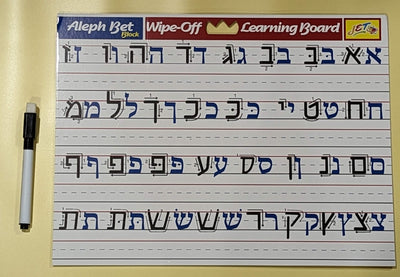 Aleph Bet Block Wipe-Off Learning Board JET
א א בּ בּ ב ב ג ג ד ד ה ה ו ו ז ז
ח ח ט ט י י כּ כּ כ כ ך ך ל ל מ מ
ם ם נ נ ן ן ס ס ע ע פּ פּ פ פ ף ף
צ צ ץ ץ ק ק ר ר שׁ שׁ שׂ שׂ תּ תּ ת ת